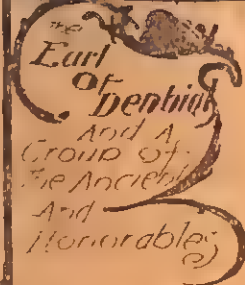 The
Earl
Of
Denbigh
And A
Group Of
The Ancient
And
Honorables